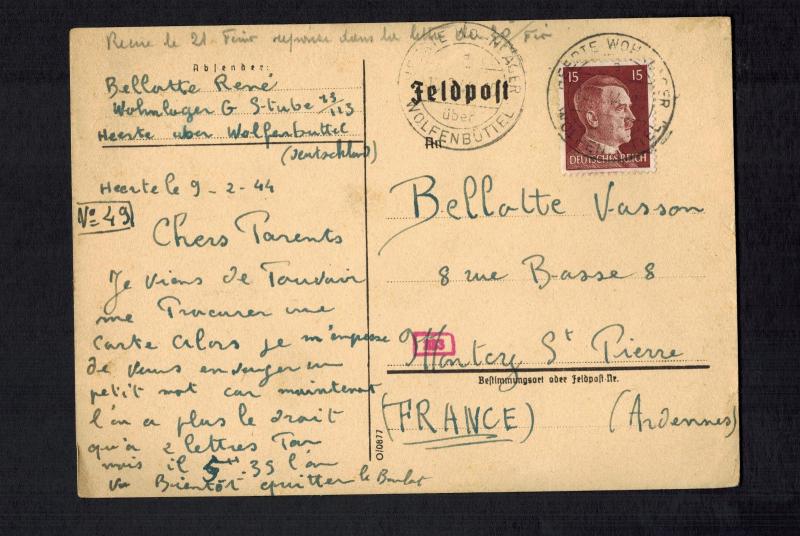 Recue le 21 Fevr reponse dans la lettre du 20 Fev
Absender:
Bellotte René
Wohnlager G Stube 23/113
Heerte uber Wolfenbüttel
(Deutschland)
Heerte le 9-2-44
No=49
Chers Parents
Je viens de Pouvoir
me Procurer une
carte Alors je m'empresse
de vous envoyer un
petit mot car maintenant
l'on a plus le droit
qu'a 2 lettres Par
mois il 5 35 l'on
va Bientôt quitter le Boulot
HEERTE WOHNLAGER
über
WOLFENBÜTTEL
Feldpost
An
HEERTE WOHNLAGER
15 15
DEUTSCHES REICH
Bellotte Vasson
8 rue Basse 8
Montcy St Pierre
Bestimmungsort oder Feldpost-Nr.
(FRANCE) (Ardennes)
O/0877